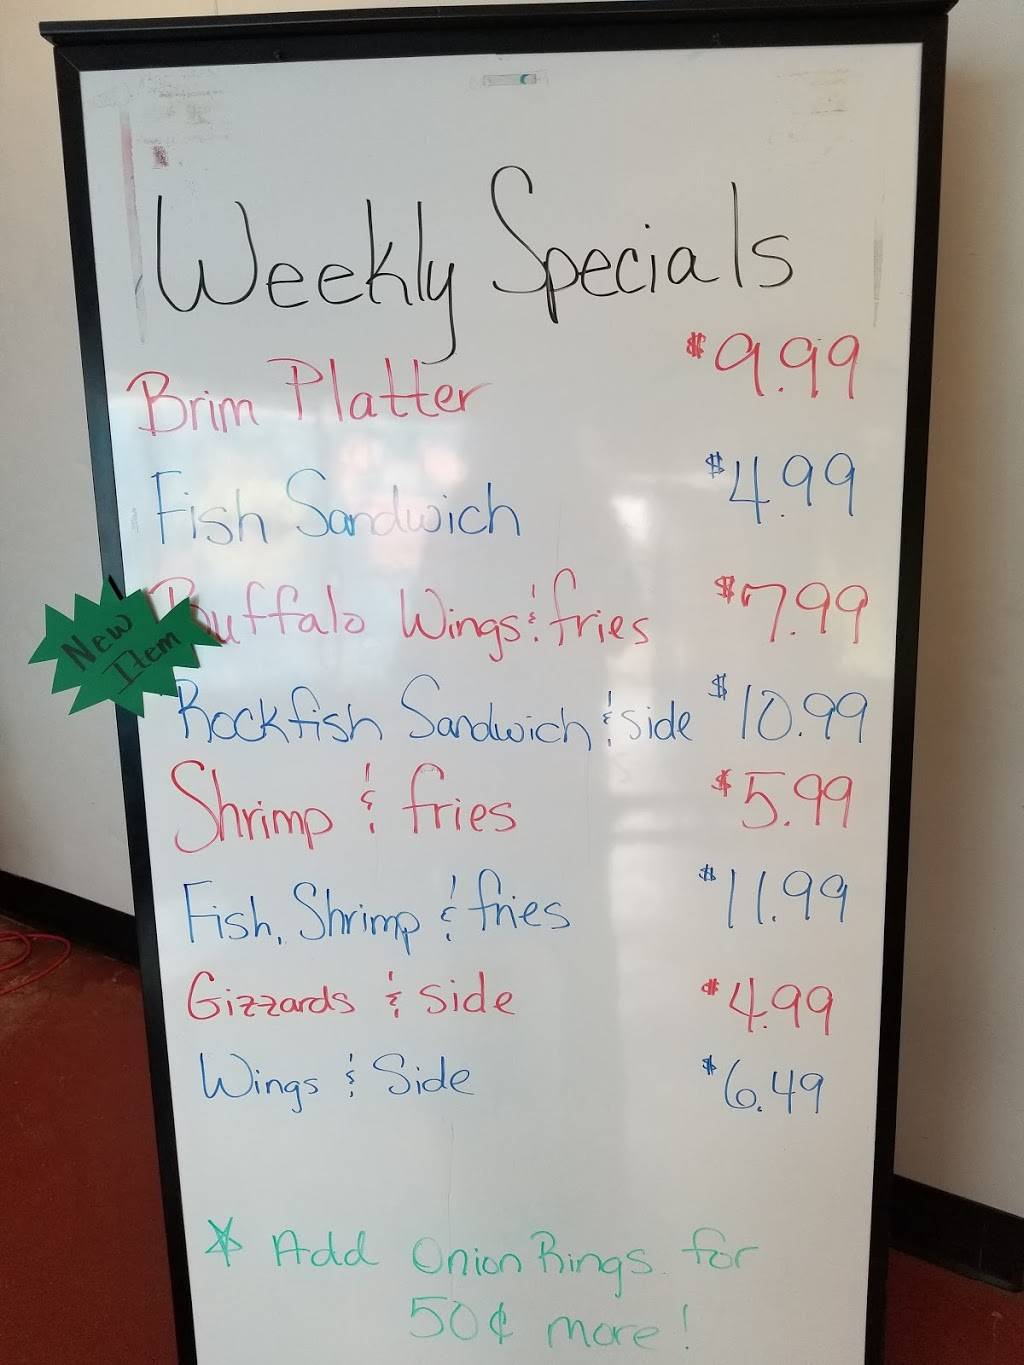 Weekly Specials
Brim Platter $9.99
Fish Sandwich $4.99
New Item
Buffalo Wings & fries $7.99
Rockfish Sandwich & side $10.99
Shrimp & fries $5.99
Fish, Shrimp & fries $11.99
Gizzards & side $4.99
Wings & Side $6.49
* Add Onion Rings for
50¢ more!